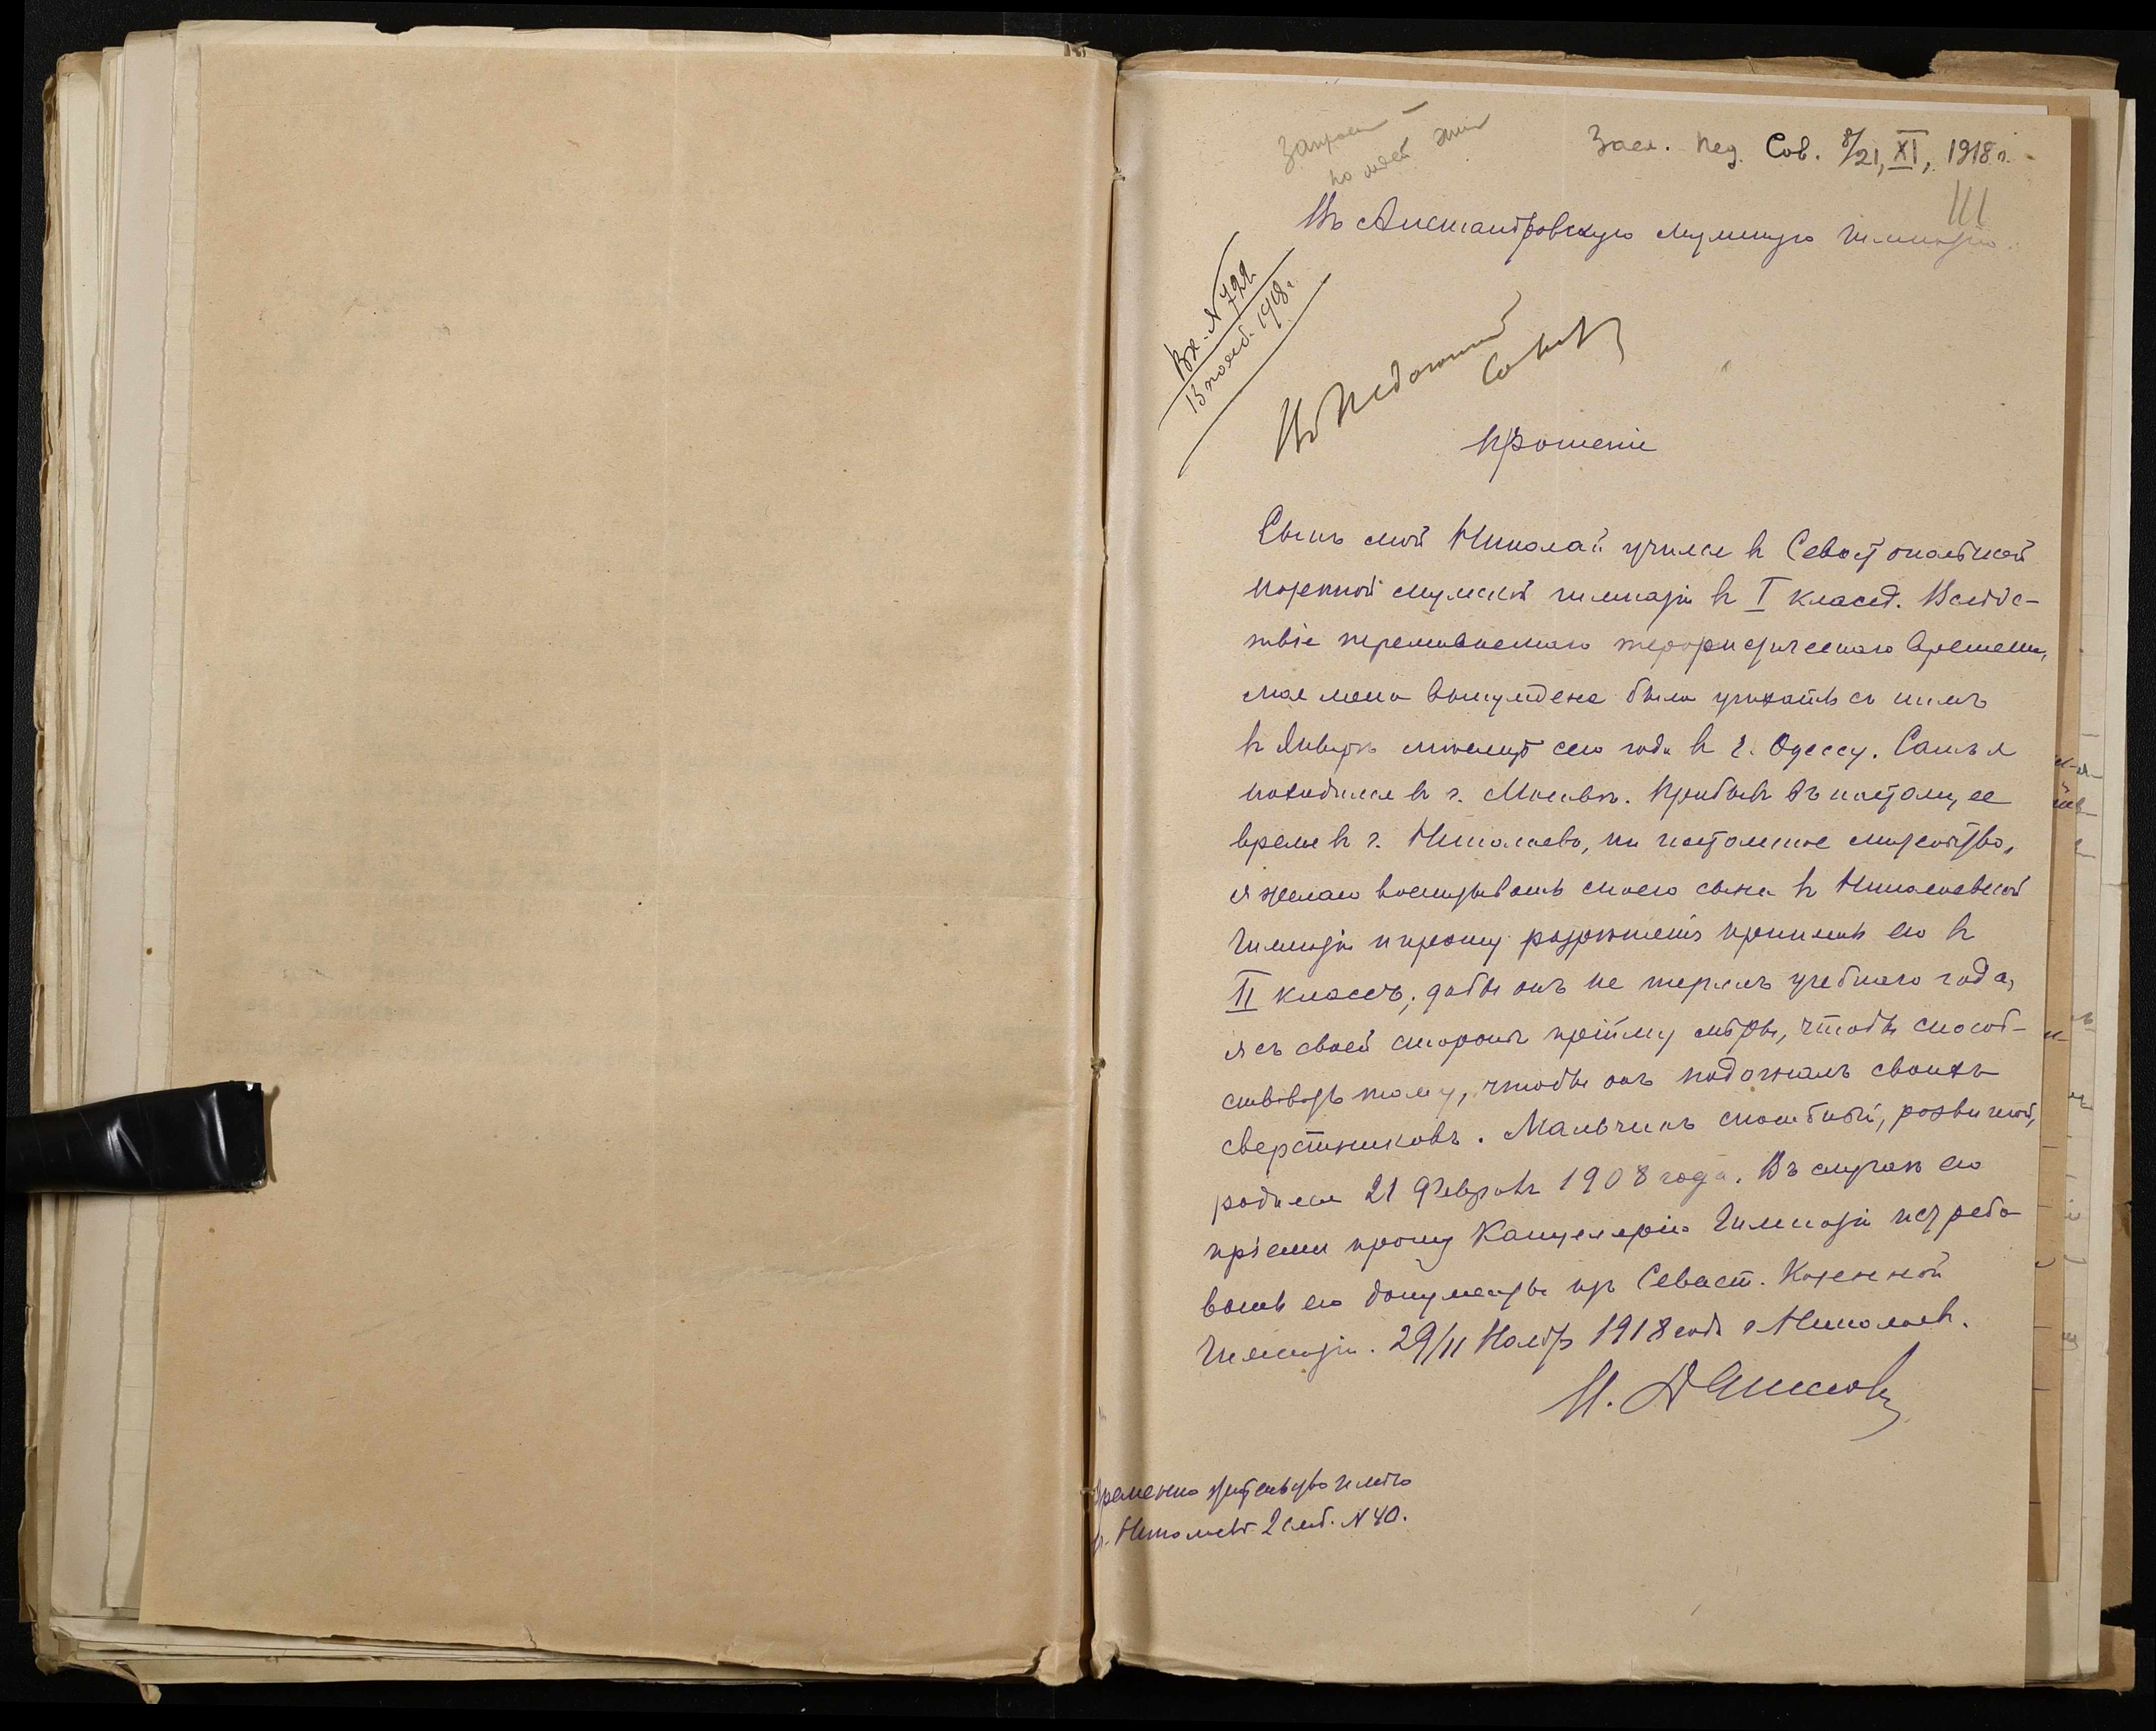 Засѣд. Пед. Сов. 8/21, XI, 1918 г.
III
Въ Александровскую мужскую гимназію.
Вх. № 722
13 нояб. 1918 г.
Въ Педагогическій
Совѣтъ
Прошеніе
Сынъ мой Николай учился въ Севастопольской
казенной мужской гимназіи въ I классѣ. Вслѣдс-
твіе переживаемаго терористическаго времени,
моя жена вынуждена была уѣхать съ нимъ
въ Январѣ мѣсяцѣ сего года въ г. Одессу. Самъ я
находился въ г. Москвѣ. Прибывъ въ настоящее
время въ г. Николаевъ, на постоянное жительство,
я желаю воспитывать своего сына въ Николаевской
Гимназіи и прошу разрѣшенія принять его въ
II классъ, дабы онъ не терялъ учебнаго года,
я съ своей стороны пріиму мѣры, чтобы способ-
ствовать тому, чтобы онъ подогналъ своихъ
сверстниковъ. Мальчикъ способный, развитой,
родился 21 Февраля 1908 года. Въ случаѣ его
пріема прошу Канцелярію Гимназіи истребо-
вать его документы изъ Севаст. Казенной
Гимназіи. 29/11 Ноябр 1918 года г. Николаевъ.
Временно жительство имѣю
г. Николаевъ 2 Слоб. № 40.